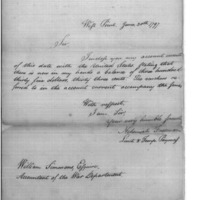 West Point, June 30th, 1797
Sir,
I enclose you my account current
of this date with the United States, stating that
there is now in my hands a balance of three hundred
thirty four dollars, thirty three cents. The vouchers re-
ferred to in the account current accompany the same.
With respect,
I am Sir,
your very humble servt
Lieut & Paymaster
William Simmons Esquire
Accountant of the War Department